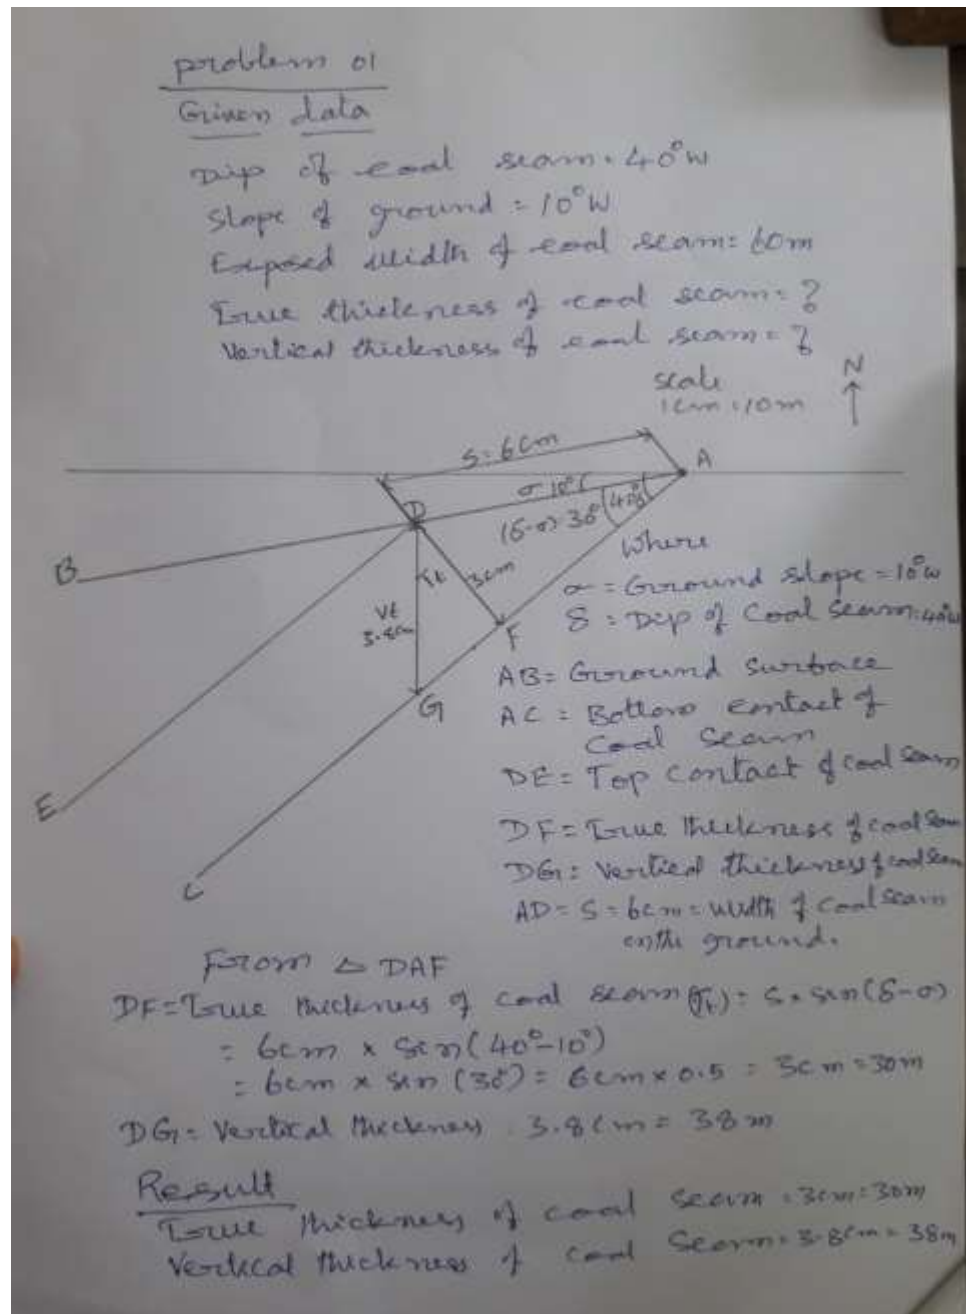 problem 01
Given data
Dip of coal seam = 40°W
Slope of ground = 10°W
Exposed width of coal seam = 60m
True thickness of coal seam = ?
Vertical thickness of coal seam = ?
scale
1cm = 10m
N
S = 6cm
A
σ 10°
D
(δ-σ) 30°
40°
B
Tt
3cm
Vt
3.8cm
F
G
E
C
Where
σ = Ground slope = 10°W
δ = Dip of Coal Seam = 40°W
AB = Ground surface
AC = Bottom contact of
Coal Seam
DE = Top contact of coal seam
DF = True thickness of coal seam
DG = Vertical thickness of coal seam
AD = S = 6cm = width of coal seam
on the ground.
From △ DAF
DF = True thickness of coal seam (Tt) = S × sin(δ-σ)
= 6cm × sin(40°-10°)
= 6cm × sin (30°) = 6cm × 0.5 = 3cm = 30m
DG = Vertical thickness = 3.8cm = 38m
Result
True thickness of coal seam = 3cm = 30m
Vertical thickness of coal seam = 3.8cm = 38m